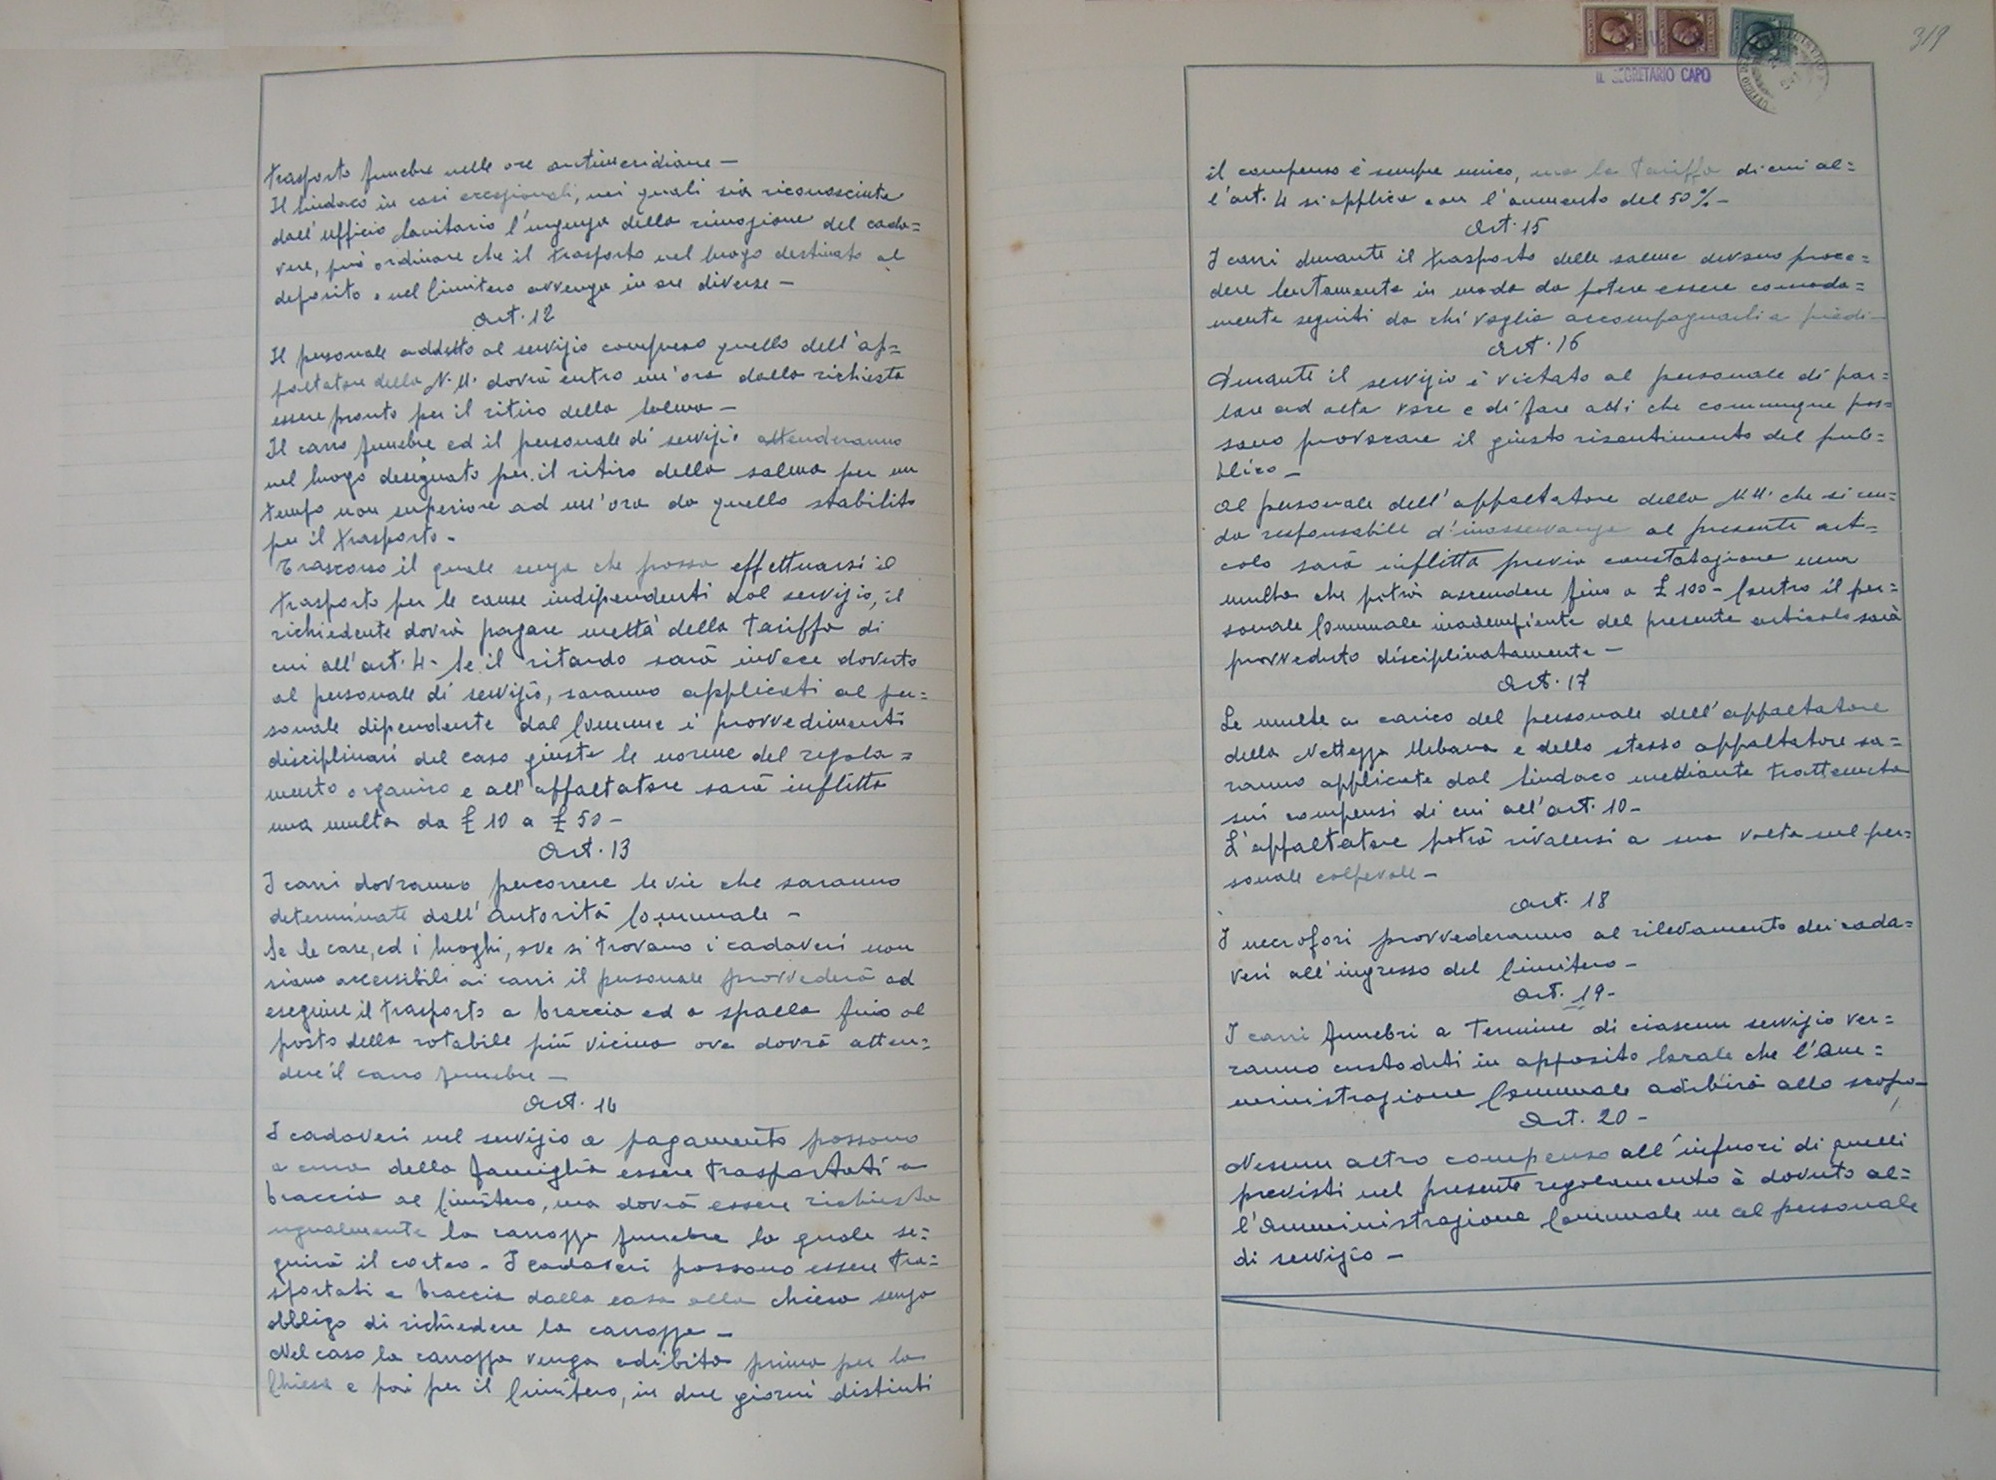 trasporto funebre nelle ore antimeridiane —
Il Sindaco in casi eccezionali, nei quali sia riconosciuta
dall'ufficio Sanitario l'urgenza della rimozione del cada=
vere, può ordinare che il trasporto nel luogo destinato al
deposito o nel Cimitero avvenga in ore diverse —
Art. 12
Il personale addetto al servizio compreso quello dell'ap=
paltatore della N.U. dovrà entro un'ora dalla richiesta
essere pronto per il ritiro della Salma —
Il carro funebre ed il personale di servizio attenderanno
nel luogo designato per il ritiro della salma per un
tempo non superiore ad un'ora da quello stabilito
per il trasporto -
Trascorso il quale senza che possa effettuarsi il
trasporto per le cause indipendenti dal servizio, il
richiedente dovrà pagare metta' della tariffa di
cui all'art. 4 - Se il ritardo sarà invece dovuto
al personale di servizio, saranno applicati al per=
sonale dipendente dal Comune i provvedimenti
disciplinari del caso giusta le norme del regola=
mento organico e all'appaltatore sarà inflitta
una multa da £ 10 a £ 50 -
Art. 13
I carri dovranno percorrere le vie che saranno
determinate dall'Autorità Comunale -
Se le case, ed i luoghi, ove si trovano i cadaveri non
siano accessibili ai carri il personale provvederà ad
eseguire il trasporto a braccia ed a spalla fino al
posto della rotabile più vicino ove dovrà atten=
dere il carro funebre —
Art. 14
I cadaveri nel servizio a pagamento possono
a cura della famiglia essere trasportati a
braccia al Cimitero, ma dovrà essere richiesta
ugualmente la carrozza funebre la quale se=
guirà il corteo - I cadaveri possono essere tra=
sportati a braccia dalla casa alla chiesa senza
obbligo di richiedere la carrozza —
Nel caso la carrozza venga adibita prima per la
Chiesa e poi per il Cimitero, in due giorni distinti
IL SEGRETARIO CAPO
319
il compenso è sempre unico, ma la tariffa di cui al=
l'art. 4 si applica con l'aumento del 50% -
Art. 15
I carri durante il trasporto delle salme devono proce=
dere lentamente in modo da potere essere comoda=
mente seguiti da chi voglia accompagnarli a piedi -
Art. 16
Durante il servizio è vietato al personale di par=
lare ad alta voce e di fare atti che comunque pos=
sano provocare il giusto risentimento del pub=
blico -
Al personale dell'appaltatore della N.U. che si ren=
da responsabile d'inosservanza al presente arti=
colo sarà inflitta previa constatazione una
multa che potrà ascendere fino a £ 100 - Contro il per=
sonale Comunale inadempiente del presente articolo sarà
provveduto disciplinatamente —
Art. 17
Le multe a carico del personale dell'appaltatore
della Nettezza Urbana e dello stesso appaltatore sa=
ranno applicate dal Sindaco mediante trattenuta
sui compensi di cui all'art. 10 -
L'appaltatore potrà rivalersi a sua volta sul per=
sonale colpevole -
Art. 18
I necrofori provvederanno al rilevamento dei cada=
veri all'ingresso del Cimitero -
Art. 19 -
I carri funebri a termine di ciascun servizio ver=
ranno custoditi in apposito locale che l'Am=
ministrazione Comunale adibirà allo scopo -
Art. 20 -
Nessun altro compenso all'infuori di quelli
previsti nel presente regolamento è dovuto al=
l'Amministrazione Comunale ne al personale
di servizio —